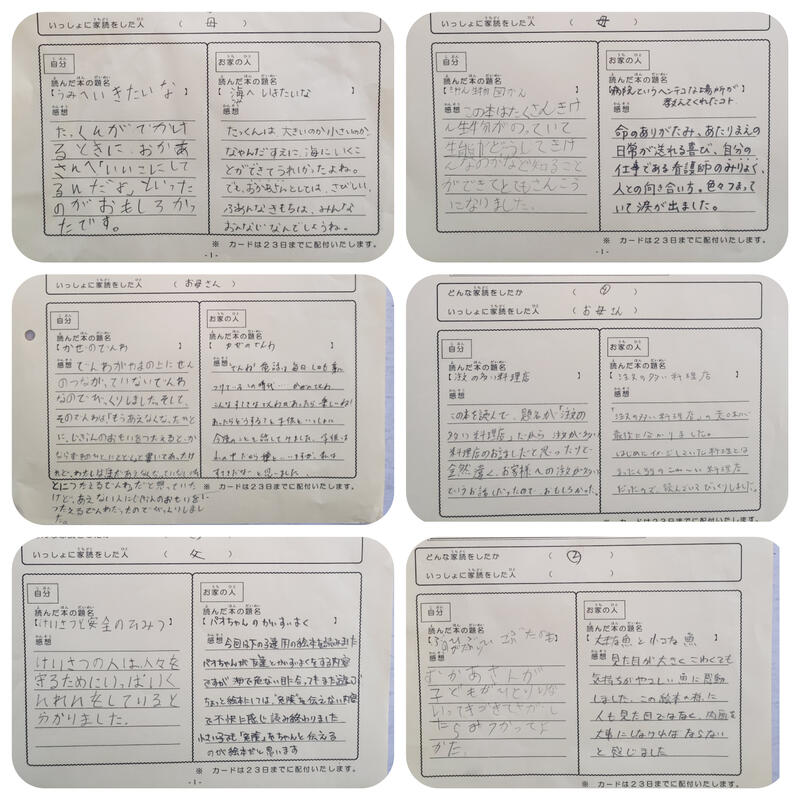 いっしょに家読をした人 （ 母 ）
自分
読んだ本の題名
【 うみへいきたいな 】
感想
たっくんがでかけ
るときに、おかあ
さんへ「いいこにして
るんだよ」といった
のがおもしろかっ
たです。
お家の人
読んだ本の題名
【 海へいきたいな 】
感想
たっくんは、大きいのか小さいのか、
なやんだすえに、海にいくこ
とができてうれしかったよね。
でも、おかあさんとしては、さびしい、
ふあんなきもちは、みんな
おんなじなんでしょうね。
※ カードは２３日までに配付いたします。
- 1 -
いっしょに家読をした人 （ 母 ）
自分
読んだ本の題名
感想
この本はたくさんきけ
ん生物がのっていて
生態がどうしてきけ
んなのかなど知ること
ができてとてもさんこう
になりました。
お家の人
読んだ本の題名
【 病院というヘンテコな場所が
教えてくれたコト 】
感想
命のありがたみ、あたりまえの
日常が送れる喜び、自分の
仕事である看護師のみりょく、
人との向き合い方。色々つまって
いて涙が出ました。
※ カードは２３日までに配付いたします。
- 1 -
いっしょに家読をした人 （ お母さん ）
自分
読んだ本の題名
【 かぜのでんわ 】
感想
でんわがやまの上にせん
のつながっていないでんわ
なのでびっくりしました。そして、
そのでんわは「もうあえなくなったひと
に、じぶんのおもいをつたえると、か
けど、あえない人にじぶんのおもいを
つたえるでんわだったのでびっくりしまし
た。
お家の人
読んだ本の題名
【 かぜのでんわ 】
感想
※ カードは２３日までに配付いたします。
どんな家読をしたか （ ② ）
いっしょに家読をした人 （ お母さん ）
自分
読んだ本の題名
【 注文の多い料理店 】
感想
この本を読んで、題名が「注文の
多い料理店」だから、注文が多い
料理店のお話しだと思ったけど
全然違く、お客様への注文が多い
というお話しだったので、おもしろかった。
お家の人
読んだ本の題名
【 注文の多い料理店 】
感想
「注文の多い料理店」の意味に
最後に分かりました。
はじめにイメージしていた料理店とは
まったく別のこわ〜い料理店
だったので、読んでいてびっくりしました。
※ カードは２３日までに配付いたします。
いっしょに家読をした人 （ 父 ）
自分
読んだ本の題名
【 けいさつと安全のひみつ 】
感想
けいさつの人は、人々を
守るためにいっぱいく
んれんをしていると
分かりました。
お家の人
読んだ本の題名
【 バオちゃんのかいすいよく 】
感想
今回は下の3歳用の絵本を読みました
バオちゃんが友達とかいすいよくをする内容
ですが 沖で危ない目に合ってもまた遊んで
ちょっと絵本にしては、"危険"を伝えない内容
で不快に感じ 読み終わりました
小さい子でも "危険"をちゃんと伝える
のが絵本だと思います
※ カードは２３日までに配付いたします。
- 1 -
どんな家読をしたか （ ② ）
いっしょに家読をした人 （ ）
自分
読んだ本の題名
感想
おかあさんが
子どもがひとりいな
いってきづきてさがし
たらみつかってよ
かた。
お家の人
読んだ本の題名
【 大きな魚と小さな魚 】
感想
見た目が大きく こわくても
気持ちがやさしい魚に感動
しました。この絵本の様に
人も見た目ではなく、内面を
大事にしなければならない
と感じました
※ カードは２３日までに配付いたします。